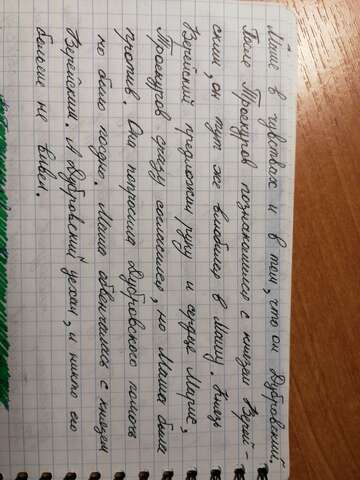 Маше в чувствах и в том, что он Дубровский."
После Троекуров познакомился с князем Верей-
ским, он тут же влюбился в Машу. Князь
Верейский предложил руку и сердце Марие,
Троекуров сразу согласился, но Маша была
против. Она попросила Дубровского помочь
но было поздно. Маша обвенчалась с князем
Верейским. А Дубровский уехал, и никто его
больше не видел.